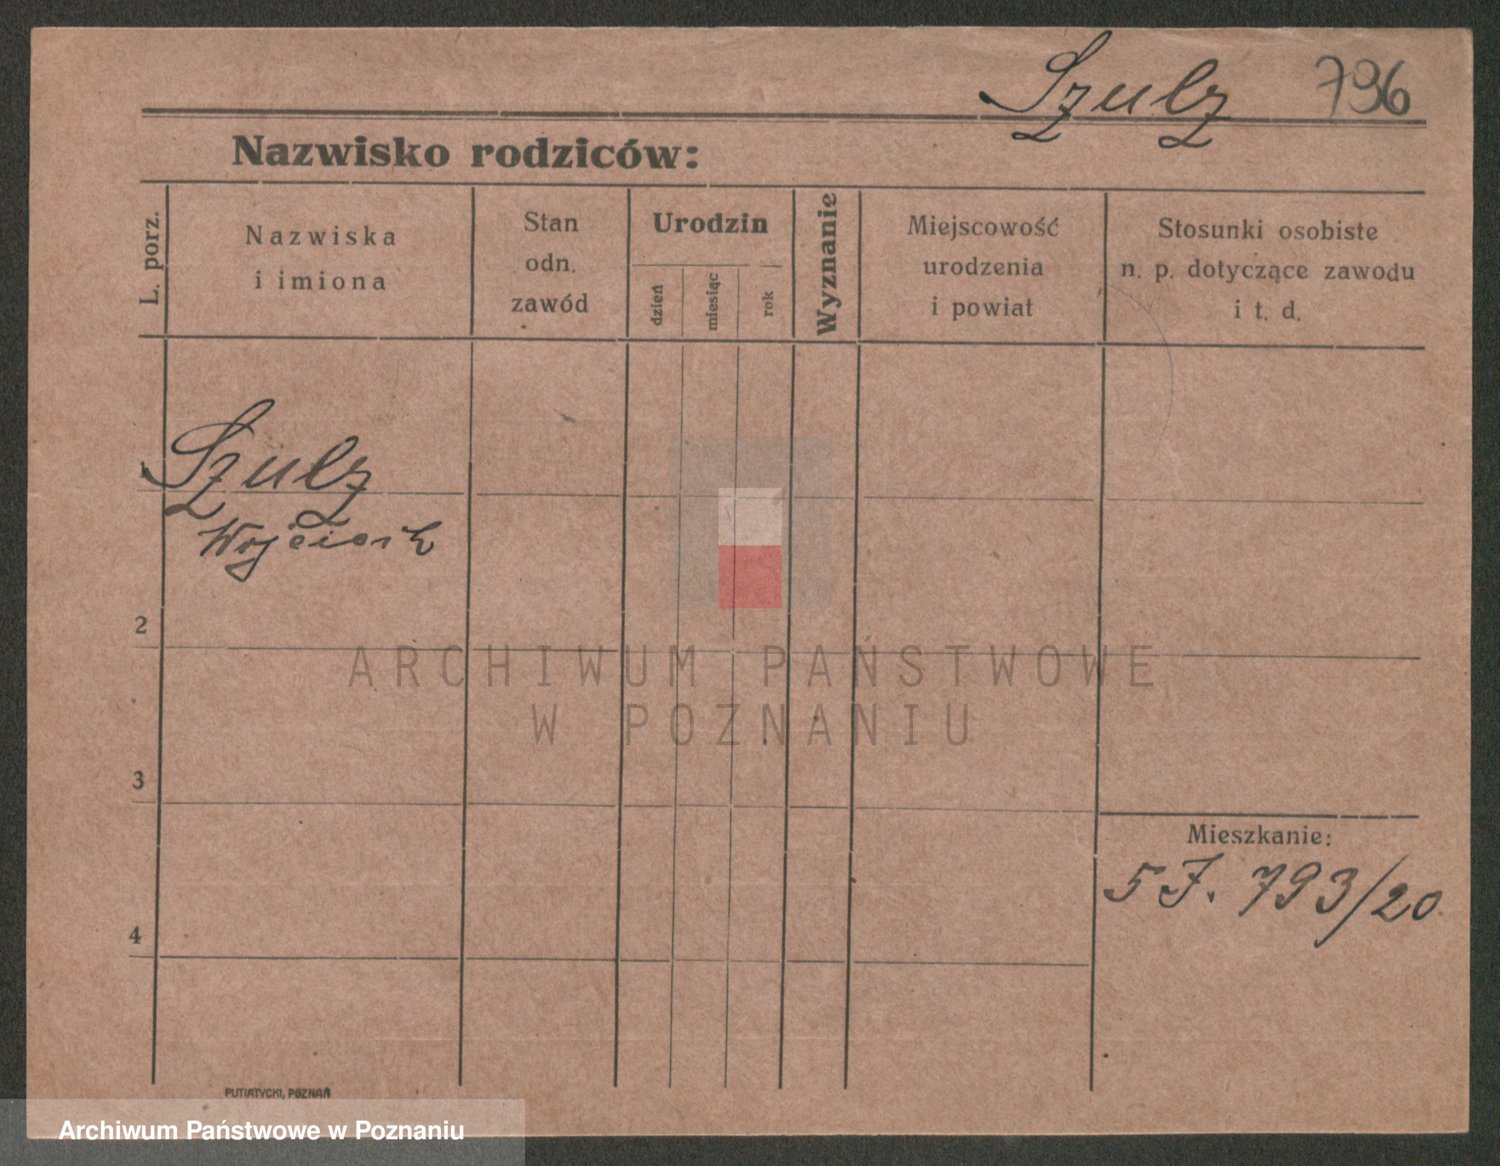 Szulz 796
Nazwisko rodziców:
L. porz.
Nazwiska
i imiona
Stan
odn.
zawód
Urodzin
dzień
miesiąc
rok
Wyznanie
Miejscowość
urodzenia
i powiat
Stosunki osobiste
n. p. dotyczące zawodu
i t. d.
1
Szulz
Wojciech
2
ARCHIWUM PAŃSTWOWE
W POZNANIU
3
Mieszkanie:
5 J. 793/20
4
PUTIATYCKI, POZNAŃ
Archiwum Państwowe w Poznaniu